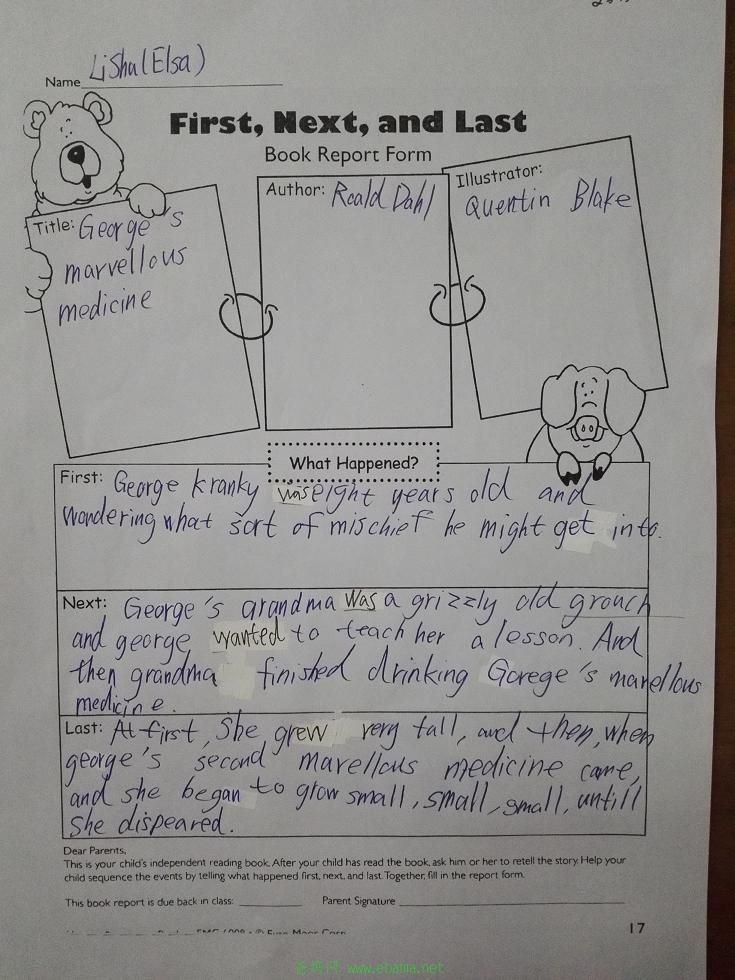 Name LiSha(Elsa)
First, Next, and Last
Book Report Form
Title: George's
marvellous
medicine
Author: Roald Dahl
Illustrator:
Quentin Blake
What Happened?
First: George kranky was eight years old and
wondering what sort of mischief he might get into.
Next: George's grandma was a grizzly old grouch
and george wanted to teach her a lesson. And
then grandma finished drinking Gorege's marellous
medicine.
Last: At first, She grew very tall, and then, when
george's second marellous medicine came,
and she began to grow small, small, small, untill
She dispeared.
Dear Parents,
This is your child's independent reading book. After your child has read the book, ask him or her to retell the story. Help your
child sequence the events by telling what happened first, next, and last. Together, fill in the report form.
This book report is due back in class: Parent Signature
17
www.ebama.net